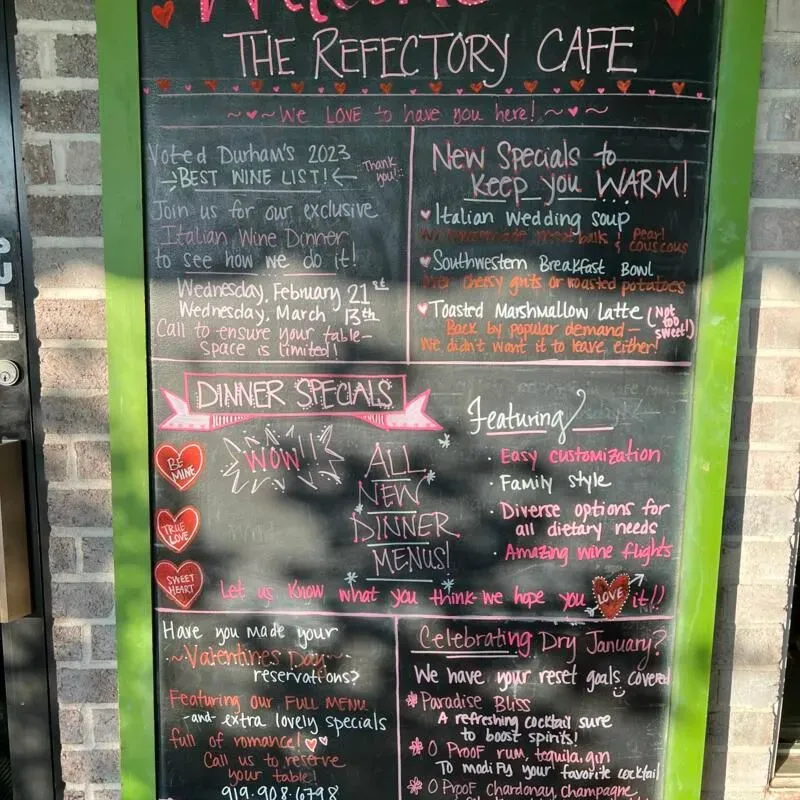 Welcome
THE REFECTORY CAFE
~♥~ We LOVE to have you here! ~♥~
Voted Durham's 2023
→BEST WINE LIST!←
Thank you!
Join us for our exclusive
Italian Wine Dinner
to see how we do it!
Wednesday, February 21st
Wednesday, March 13th
Call to ensure your table-
space is limited!
New Specials to
Keep you WARM!
♥ Italian Wedding Soup
meat balls & pearl
couscous
♥ Southwestern Breakfast Bowl
over cheesy grits or roasted potatoes
♥ Toasted Marshmallow Latte (Not too sweet!)
Back by popular demand-
We didn't want it to leave either!
DINNER SPECIALS
BE MINE
TRUE LOVE
SWEET HEART
WOW!!
ALL
NEW
DINNER
MENUS!
Featuring
· Easy customization
· Family style
· Diverse options for
all dietary needs
· Amazing wine flights
Let us know what you think-we hope you LOVE it!!
Have you made your
~Valentines Day~
reservations?
Featuring our FULL MENU
-and- extra lovely specials
full of romance!
Call us to reserve
your table!
919.908.6798
Celebrating Dry January?
We have your reset goals covered
* Paradise Bliss
A refreshing cocktail sure
to boost spirits!
* 0 Proof rum, tequila, gin
To modify your favorite cocktail
* 0 Proof chardonay, champagne,